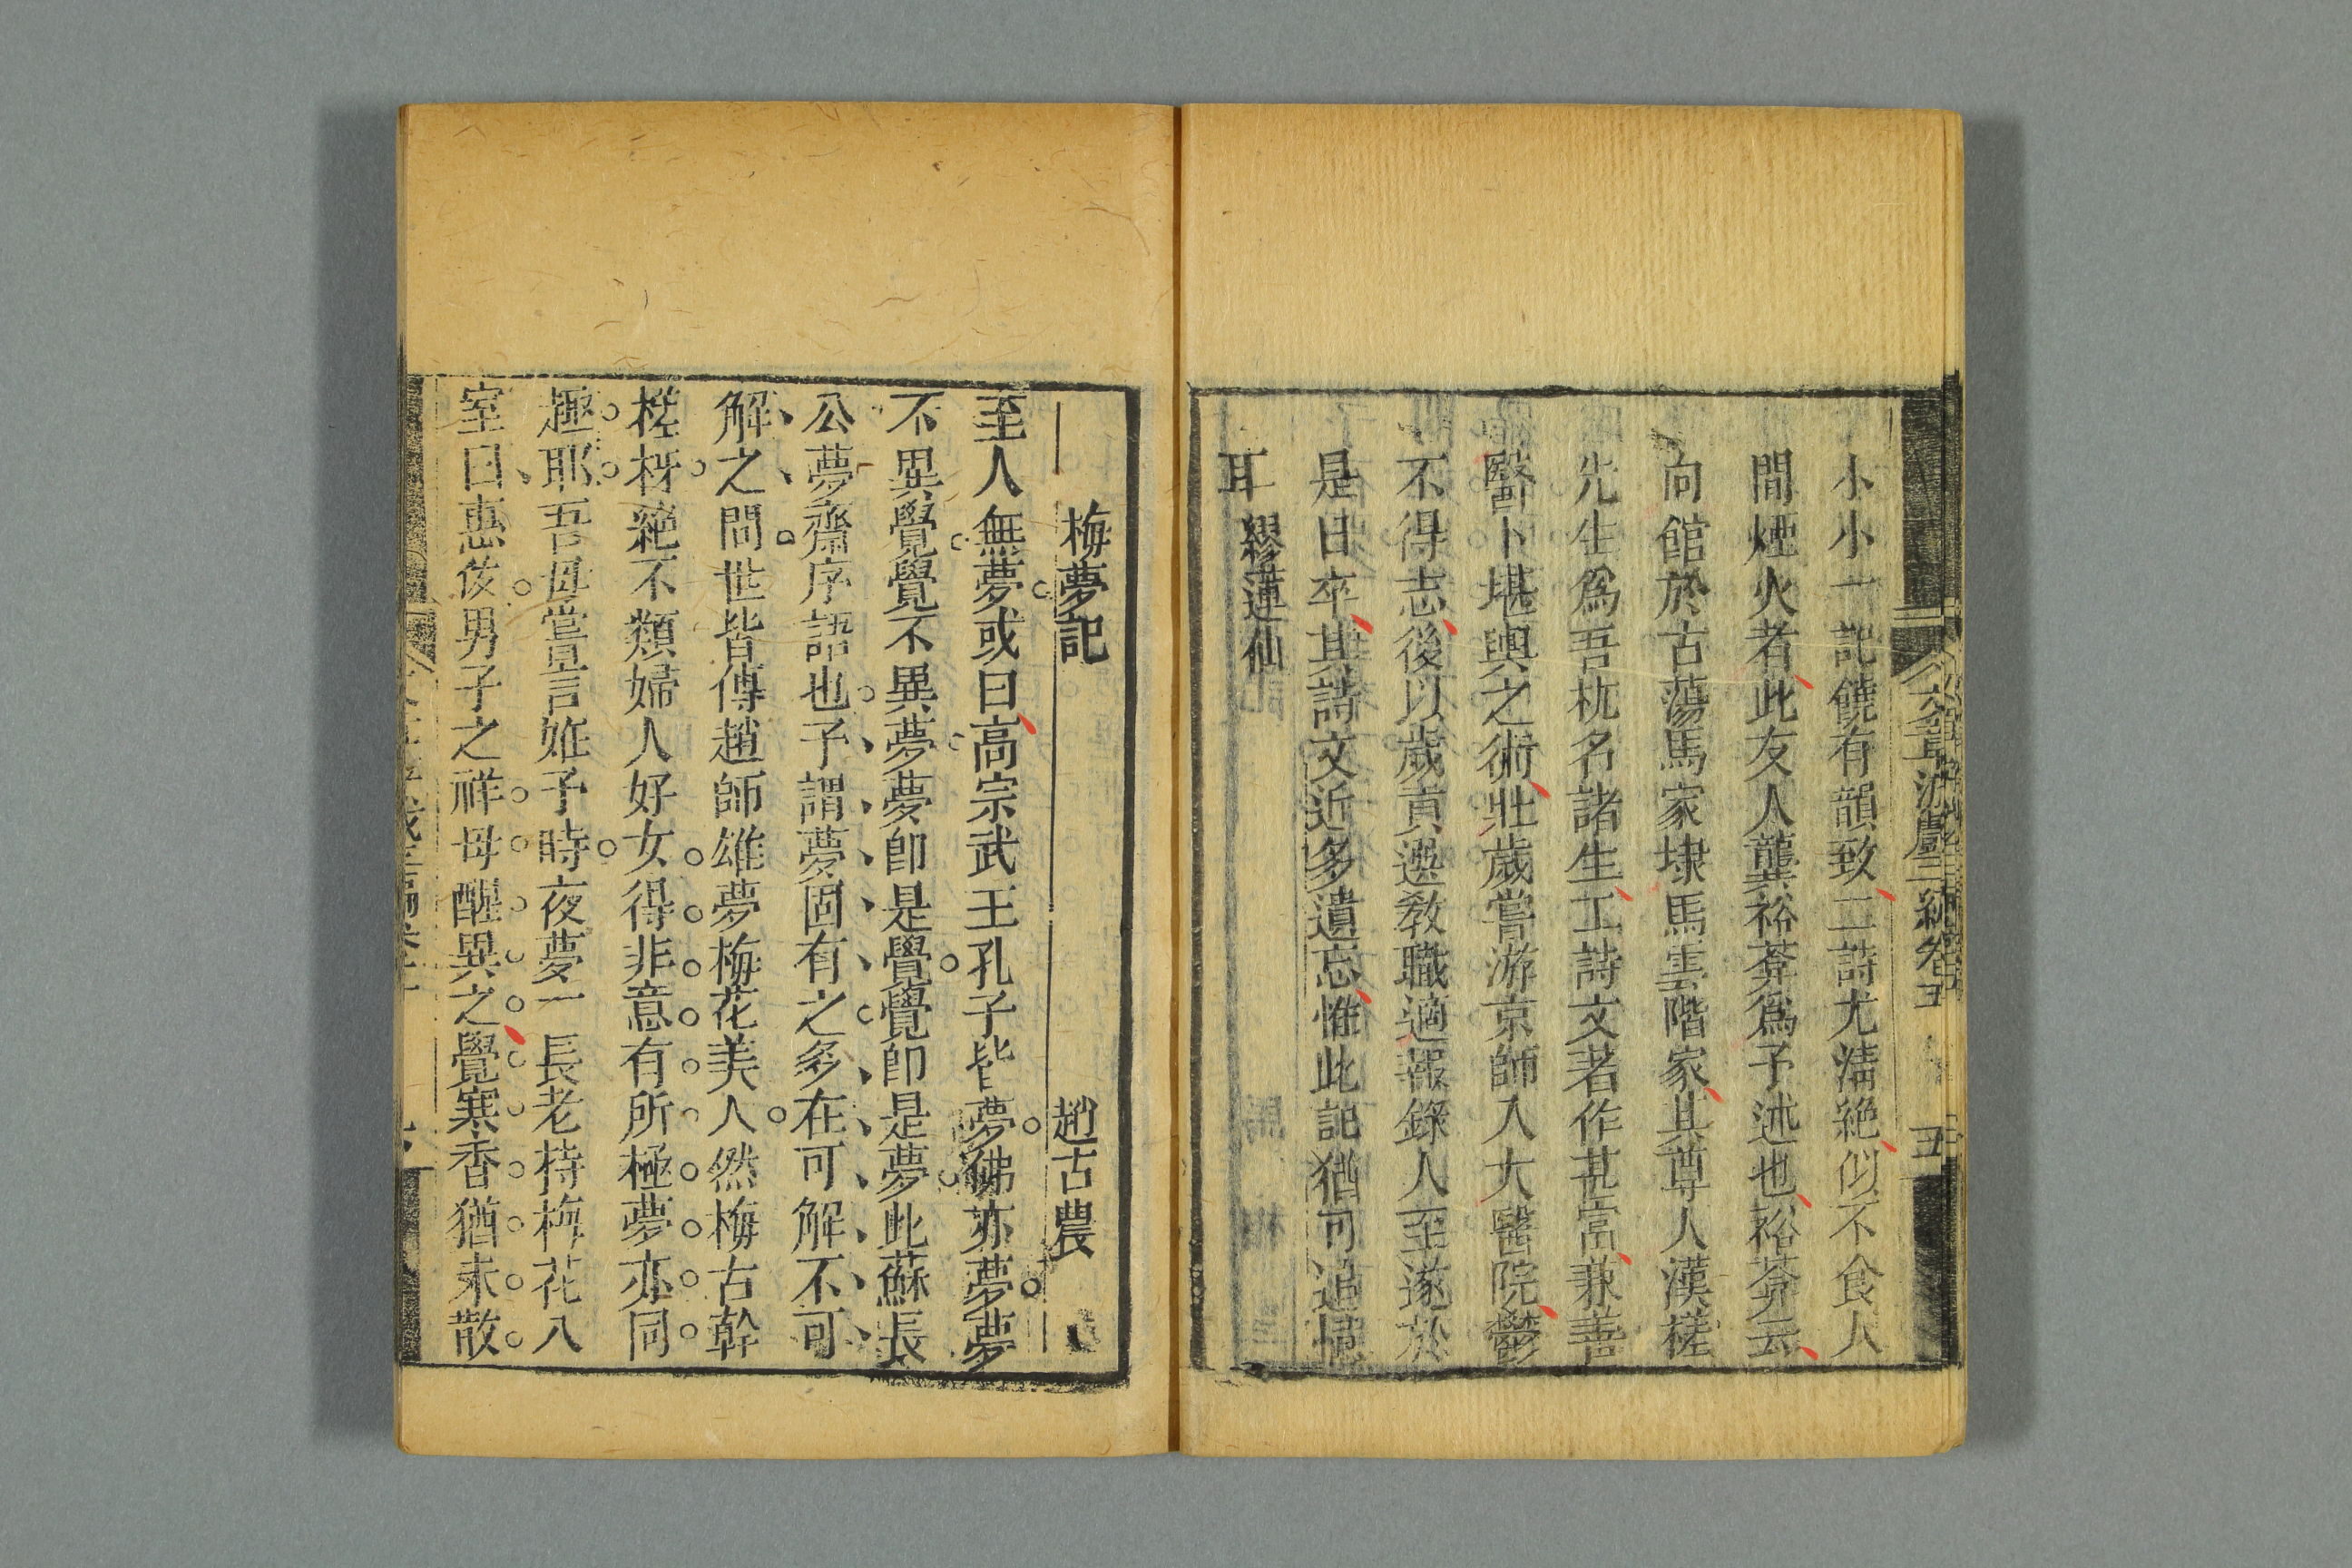 小小一記饒有韻致二詩尤淸絶似不食人
間煙火者此友人龔裕莾爲予述也裕莾云
向館於古蕩馬家埭馬雲階家其尊人漢槎
先生爲吾杭名諸生工詩文著作甚富兼善
醫卜堪輿之術壯歲嘗游京師入大醫院鬱
不得志後以歲貢選敎職適報錄人至遂於
是日卒其詩文近多遺忘惟此記猶可追憶
耳 繆蓮仙
文章游戲三編卷五 五
梅夢記 趙古農
至人無夢或曰高宗武王孔子皆夢佛亦夢夢
不異覺覺不異夢夢卽是覺覺卽是夢此蘇長
公夢齋序語也予謂夢固有之多在可解不可
解之間世皆傳趙師雄夢梅花美人然梅古幹
槎枒絶不類婦人好女得非意有所極夢亦同
趣耶吾母嘗言娠予時夜夢一長老持梅花入
室曰惠伱男子之祥母醒異之覺寒香猶未散